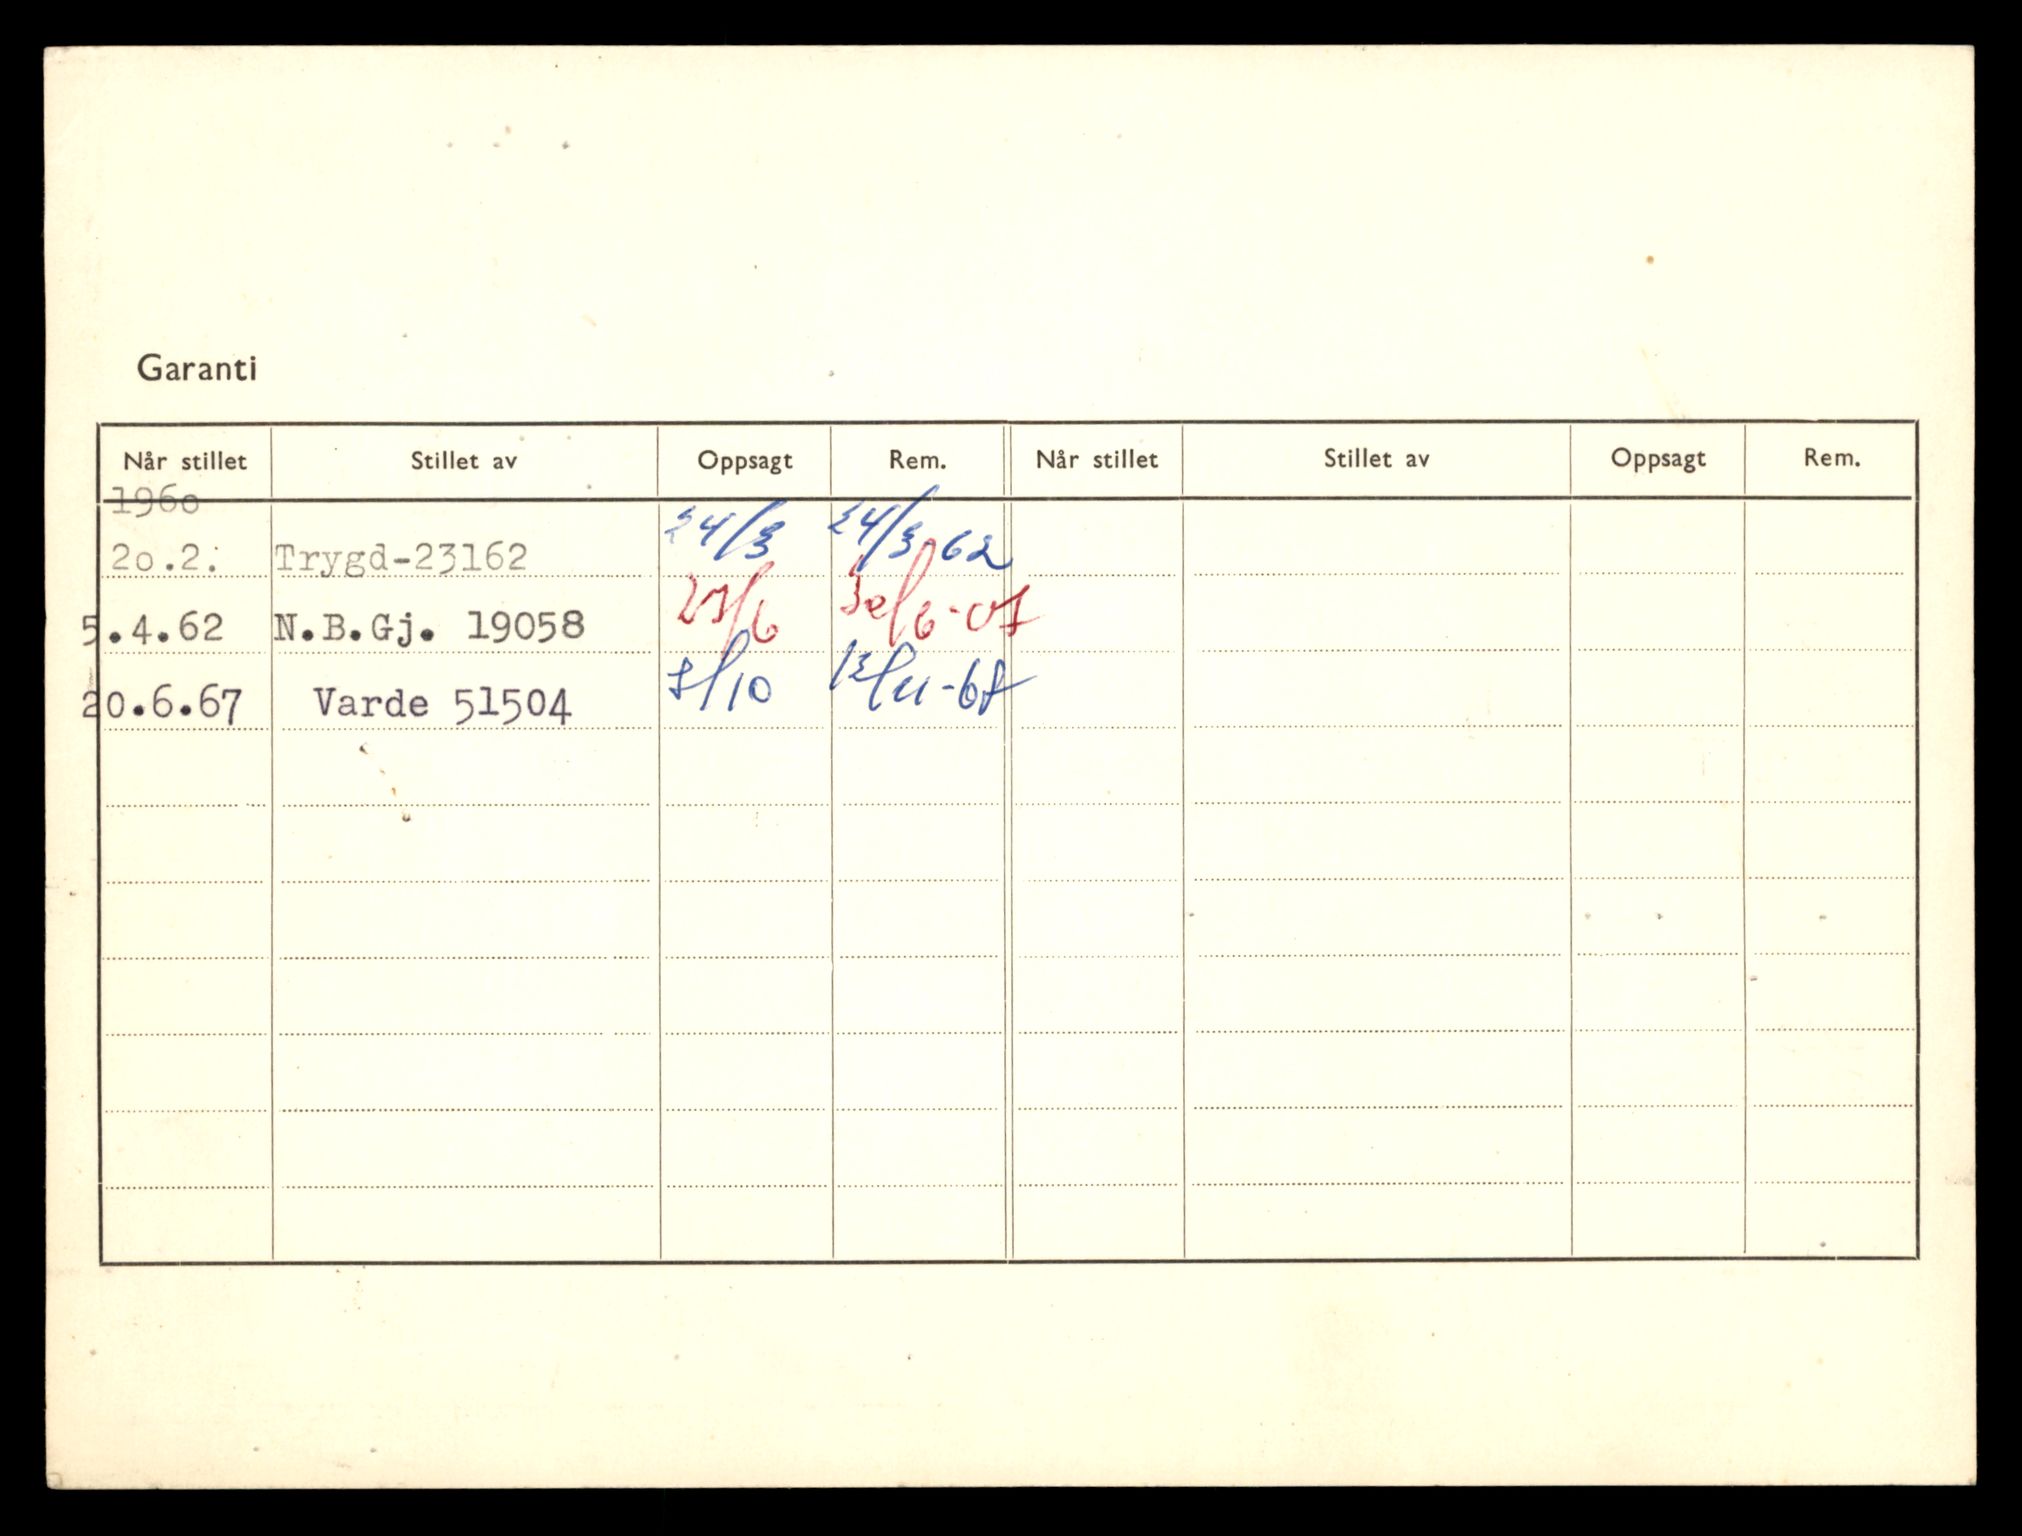 Garanti
Når stillet Stillet av Oppsagt Rem. Når stillet Stillet av Oppsagt Rem.
1960
20.2. Trygd-23162 24/3 24/3-62
5.4.62 N.B.Gj. 19058 30/6-67
20.6.67 Varde 51504 /10 13/11-68